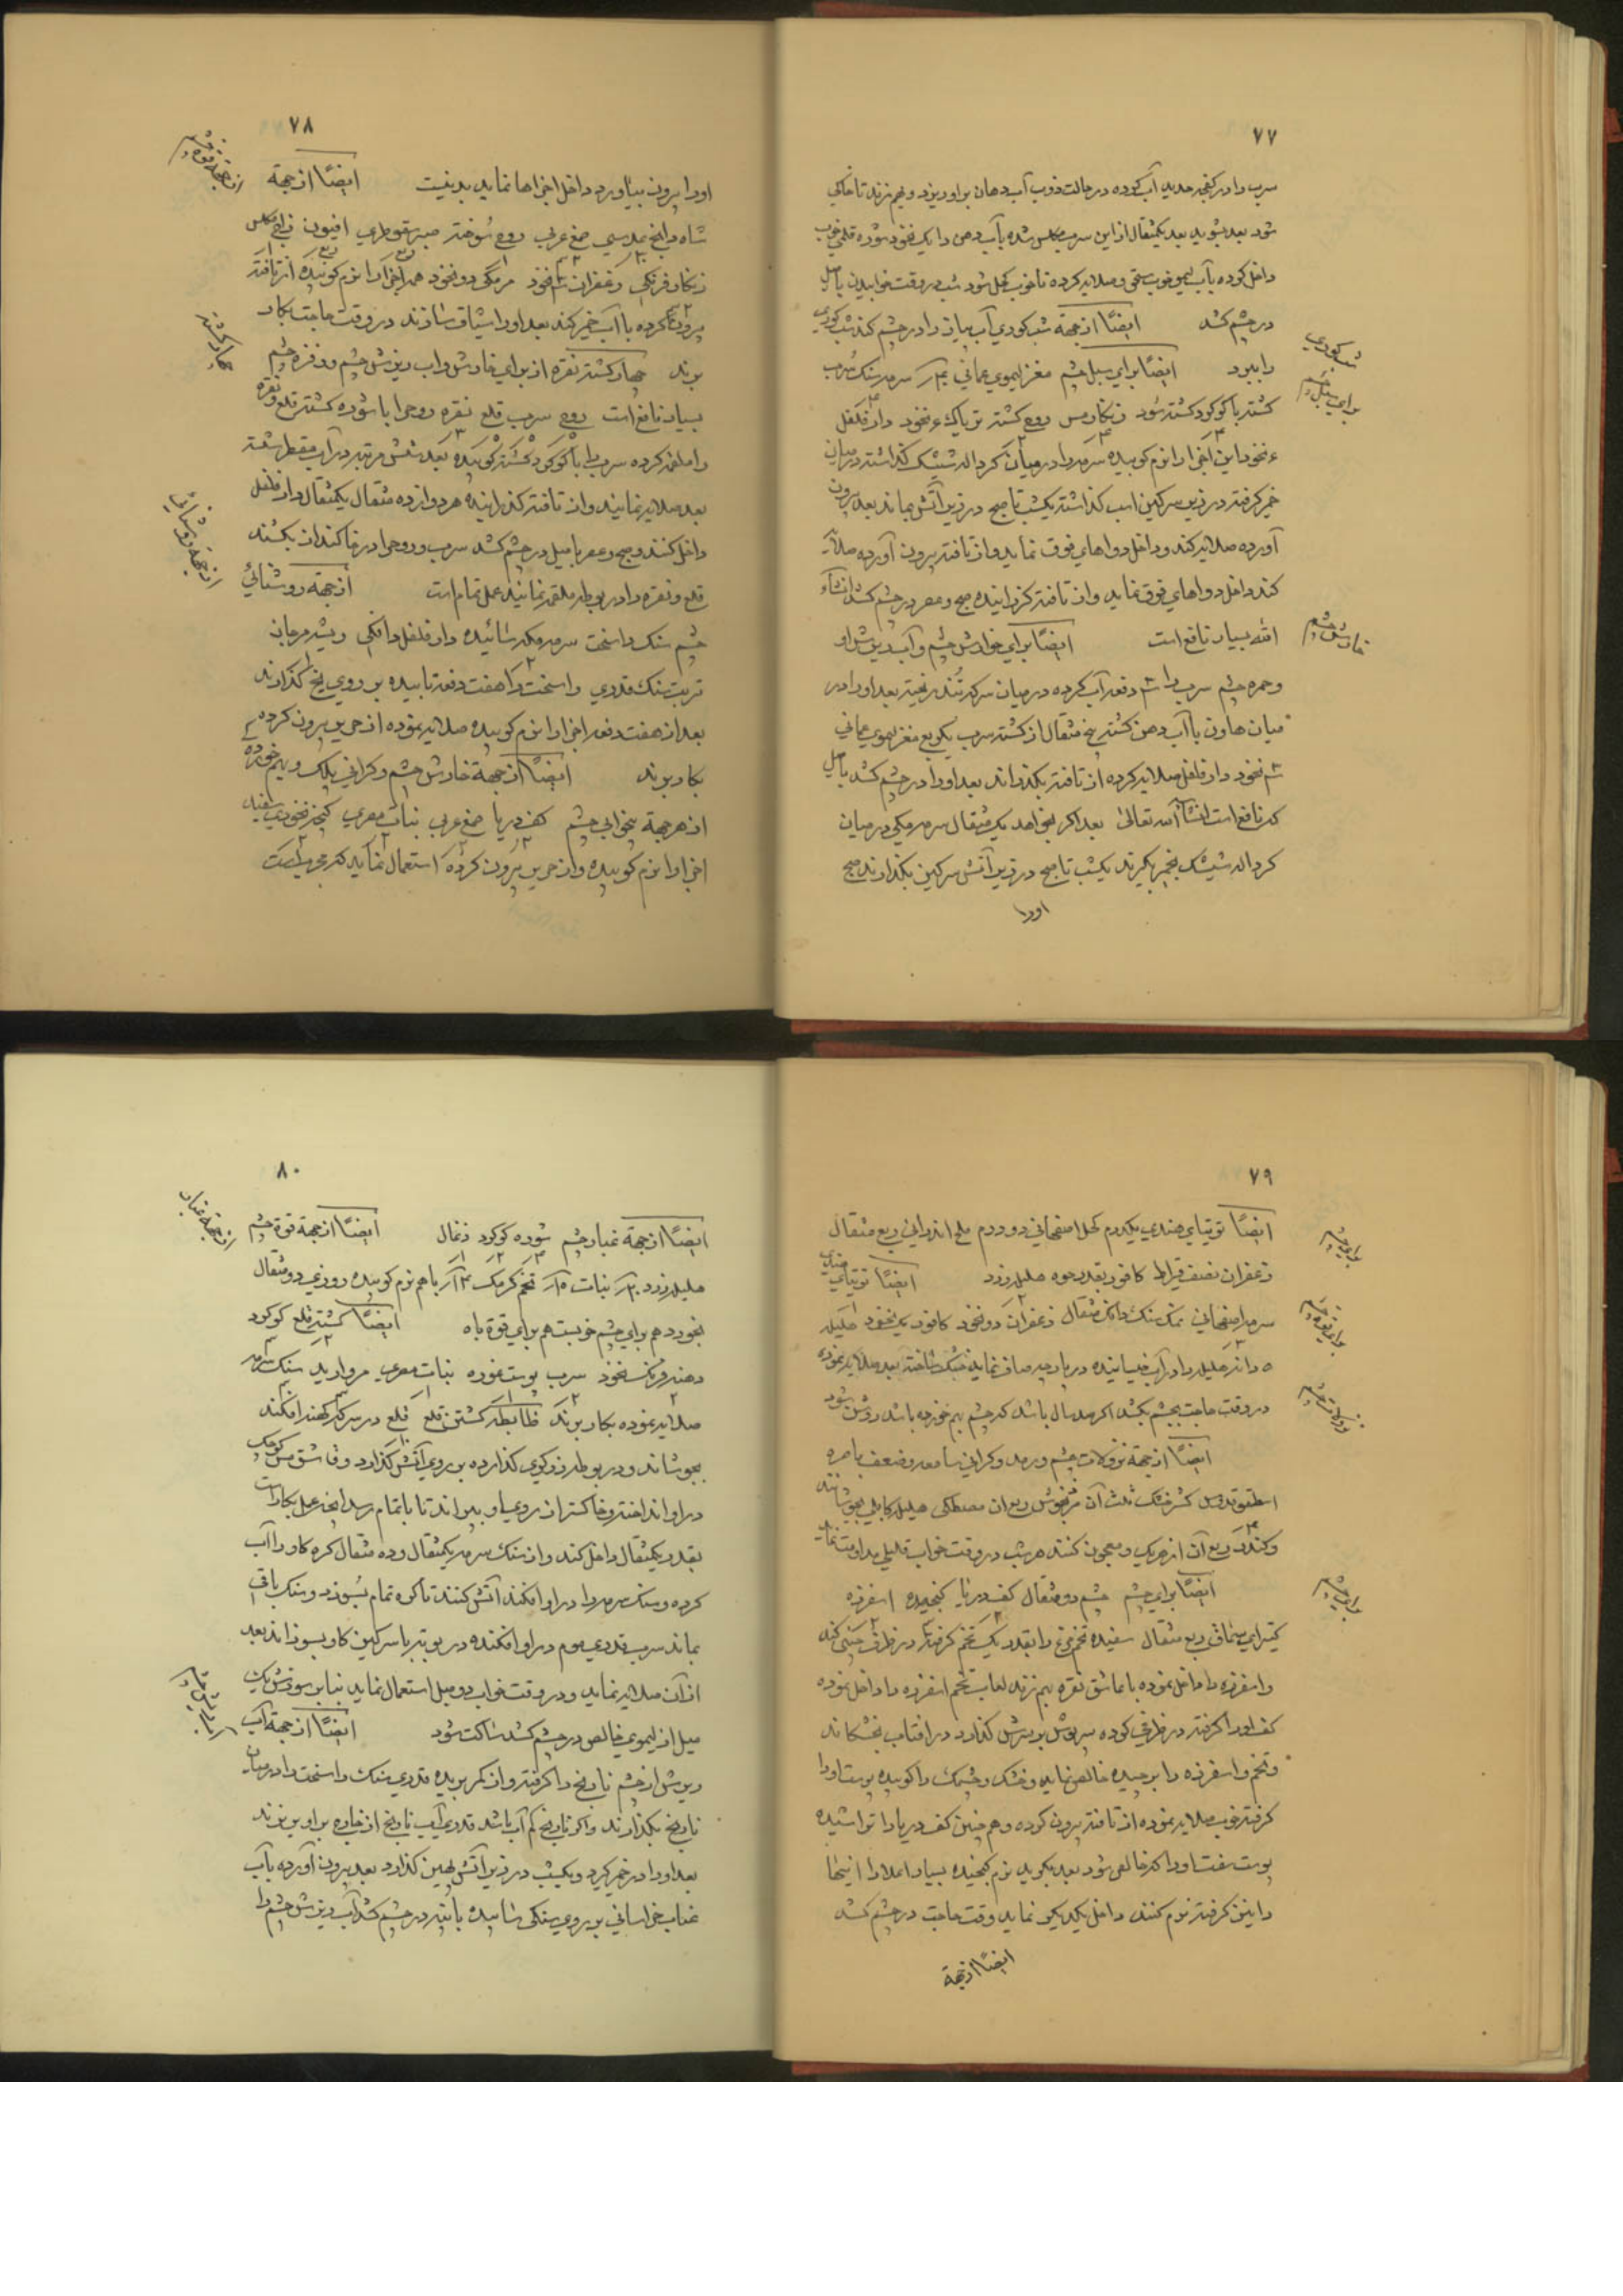 ۷۷
سرب را در کفچه حدید آب کرده در حالت ذوب آب دهان بر او ریزد و بهم زند تا خاکی
شود بعد بشوید بعد یکمثقال از این سرب مکلس شده بآب دهن دانک نخود شوره قلمی خوب
داخل کرده بآب لیمو خوب سحق و صلایه کرده تا خوب کحل شود شب در وقت خوابیدن با میل
در چشم کشد ایضًا از جهة شب کوری آب پیاز را در چشم کند شب کوری
شب کوری
را ببرد ایضًا برای سبل چشم مغز لیموی عمانی سرمه سنک سرب
برای سبل چشم
کشته با کوکرد کشته شود زنکار مس روی کشته تریاک ۶ نخود دار فلفل
۶ نخود این اجزا را نرم کوبیده سرمه را در میان کرده شیشک کذاشته در میان
خمیر کرفته در زیر سرکین اسب کذاشته یکشب تا صبح در زیر آتش بماند بعد بیرون
آورده صلایه کند و داخل دواهای فوق نماید و از تافته بیرون آورده صلایه
کند داخل دواهای فوق نماید و از تافته کذرانیده صبح و عصر در چشم کشد انشاء
الله بسیار نافع است ایضًا برای خوارش چشم و آب ریزش او
خارش چشم
و حمره چشم سرب را ۳ دفعه آب کرده در میان سرکه تند ریخته بعد او را در
میان هاون با آب دهن کشته پنج مثقال از کشته سرب یکربع مغز لیموی عمانی
۳ نخود دار فلفل صلایه کرده از تافته بکذراند بعد او را در چشم کشد با میل
که نافع است انشآ الله تعالی بعد اکر بخواهد یکمثقال سرمه مکی در میان
کرده شیشک بخمیر بکیرند یکشب تا صبح در زیر آتش سرکین بکذارند صبح
اورا
۷۸
اورا بیرون بیاورد داخل اجزاها نماید بدنیست ایضًا از جهة
از جهة قوة چشم
شاه دانج عدسی صمغ عربی روی سوخته صبر سقوطری افیون زاج مکلس
زنکار فرنکی زعفران ۳ نخود مر مکی دو نخود همه اجزا را نرم کوبیده از تافته
بیرون کرده با آب خمیر کند بعد او را شیاف سازند در وقت حاجت بکار
برند چهار کشته نقره از برای خارش و آب ریزش چشم و زفره چشم
چهار کشته
بسیار نافع است روی سرب قلع نقره روحرا با شوره کشته قلع و نقره
را ملغمه کرده سرب را با کوکرد کشته کوبیده بعد شش مرتبه در آب مقطر شسته
بعد صلایه نمایند و از تافته کذرانیده هر دوازده مثقال یکمثقال دار فلفل
داخل کنند صبح و عصر با میل در چشم کشد سرب و روحرا در خاکندان بکشند
قلع و نقره را در بوطه ملقمه نمایند عمل تمام است از جهة روشنائی
از جهة روشنائی
چشم سنک راسخت سرمه مکه سائیده دار فلفل دانکی ریشه مرجان
تربت سنک قدری راسخت را هفت دفعه تابیده بر روی یخ کذارند
بعد از هفت دفعه اجزا را نرم کوبیده صلایه نموده از حریر بیرون کرده
بکار برند ایضًا از جهة خارش چشم و کرانی پلک و بهم خورده
از هر جهة بیخوابی چشم کف دریا صمغ عربی نبات مصری کیخه نخودی سفید
اجزا را نرم کوبیده و از حریر بیرون کرده استعمال نماید که مجرب است
۷۹
ایضًا توتیای هندی یکدرم کحل اصفهانی دو درم ملح اندرانی ربع مثقال
برای چشم
زعفران نصف قیراط کافور بقدر حبه هلیله زرد ایضًا توتیای هندی
سرمه اصفهانی نمک سنک دانک مثقال زعفران دو نخود کافور یک نخود هلیله
برای قوة چشم
۵ دانه هلیله را در آب خیسانیده در پارچه صاف نماید خشک ساخته بعد صلایه نموده
در وقت حاجت بچشم بکشد اکر صد سال باشد که چشم بهم خورده باشد روشن شود
نزولات چشم
ایضًا از جهة نزولات چشم و رمد و کرانی سامعه و ضعف باصره
اسطوخدوس کشز خشک ثلث آن مرزنجوش ربع آن مصطکی هلیله کابلی بجوشانند
و کندر ربع آن از هر یک و معجون کنند هر شب در وقت خواب قلیلی مداومت نماید
ایضًا برای چشم چشم دو مثقال کف دریا کنجیده انفرزه
برای چشم
کتیرای سماق ربع مثقال سفیده تخم مرغ را بقدر یک تخم کرفته در ظرف چینی کند
و انفرزه را داخل نموده با قاشق نقره بهم زند لعاب تخم انفرزه را داخل نموده
کف او را کرفته در ظرفی کرده سرپوش بر سرش کذارد در افتاب بخشکاند
و تخم و انفرزه را بر چیده خالص نماید و خشک و چشمک را کوبیده پوست او را
کرفته خوب صلایه نموده از تافته بیرون کرده و هم چنین کف دریا را تراشیده
پوست سفت او را که خالص شود بعد بکوبد نرم کیخیده بسیار اعلا را اینها
را نیز کرفته نرم کنند داخل یکدیکر نماید وقت حاجت در چشم کشد
ایضًا از جهة
۸۰
ایضًا از جهة غبار چشم شوره کوکرد زغال ایضًا از جهة قوة چشم
از جهة غبار
هلیله زرد نبات تخم کرمک باهم نرم کوبیده روزی دو مثقال
بخورد هم برای چشم خوبست هم برای قوة باه ایضًا کشته قلع کوکرد
دهنه فرنک نخود سرب پوست غوره نبات مصری مروارید سنک سرمه
صلایه نموده بکار برند ضابطه کشتن قلع قلع در سرکه کهنه افکند
بجوشاند و در بوطه زرکری کذارده بر روی آتش کذارد و قاشق مس کوچک
در او انداخته و خاکستر از روی او بیراند تا باتمام رسد ایخه عمل بکار است
بقدر یکمثقال داخل کند و از سنک سرمه یکمثقال و ده مثقال کره کاو را آب
کرده و سنک سرمه را در او افکند آتش کنند تا کره تمام بسوزد و سنک باقی
بماند سرب قدری موم در او افکنده در بوته با سرکین کاو بسوزاند بعد
از آن صلایه نماید و در وقت خواب دو میل استعمال نماید بنابر سوزش یک
میل از لیموی خالص در چشم کشد ساکت شود ایضًا از جهة آب
آب ریزش چشم
ریزش از چشم نارنج را کرفته و از کمر بریده قدری سنک راسخت را در میان
نارنج بکذارند و اکر نارنج کم آب باشد قدری آب نارنج از خارج بر او بریزند
بعد او را در خمیر کیرد و یکشب در زیر آتش بهین کذارد بعد بیرون آورده بآب
عناب خراسانی بر روی سنکی سابیده با پنبه در چشم کشد آب ریزش چشم را